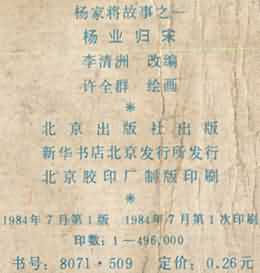 杨家将故事之一
杨业归宋
李清洲 改编
许全群 绘画
*
北京出版社出版
新华书店北京发行所发行
北京胶印厂制版印刷
*
1984年7月第1版 1984年7月第1次印刷
印数：1—496,000
书号：8071·509 定价：0.26元